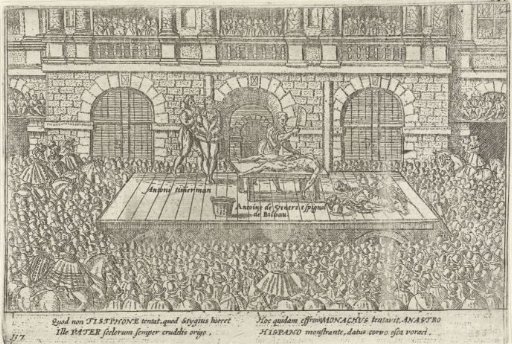 Antoni timerman
Antoine de Veners espignol
de Bilbau.
Quod non TISIPHONE tentat, quod Stygius hæret
Ille PATER scelerum semper crudelis origo,
Hoc quidam effrons MONACHUS tentavit, ANASTRO
HISPANO monstrante, datur corvo esca voraci.
117